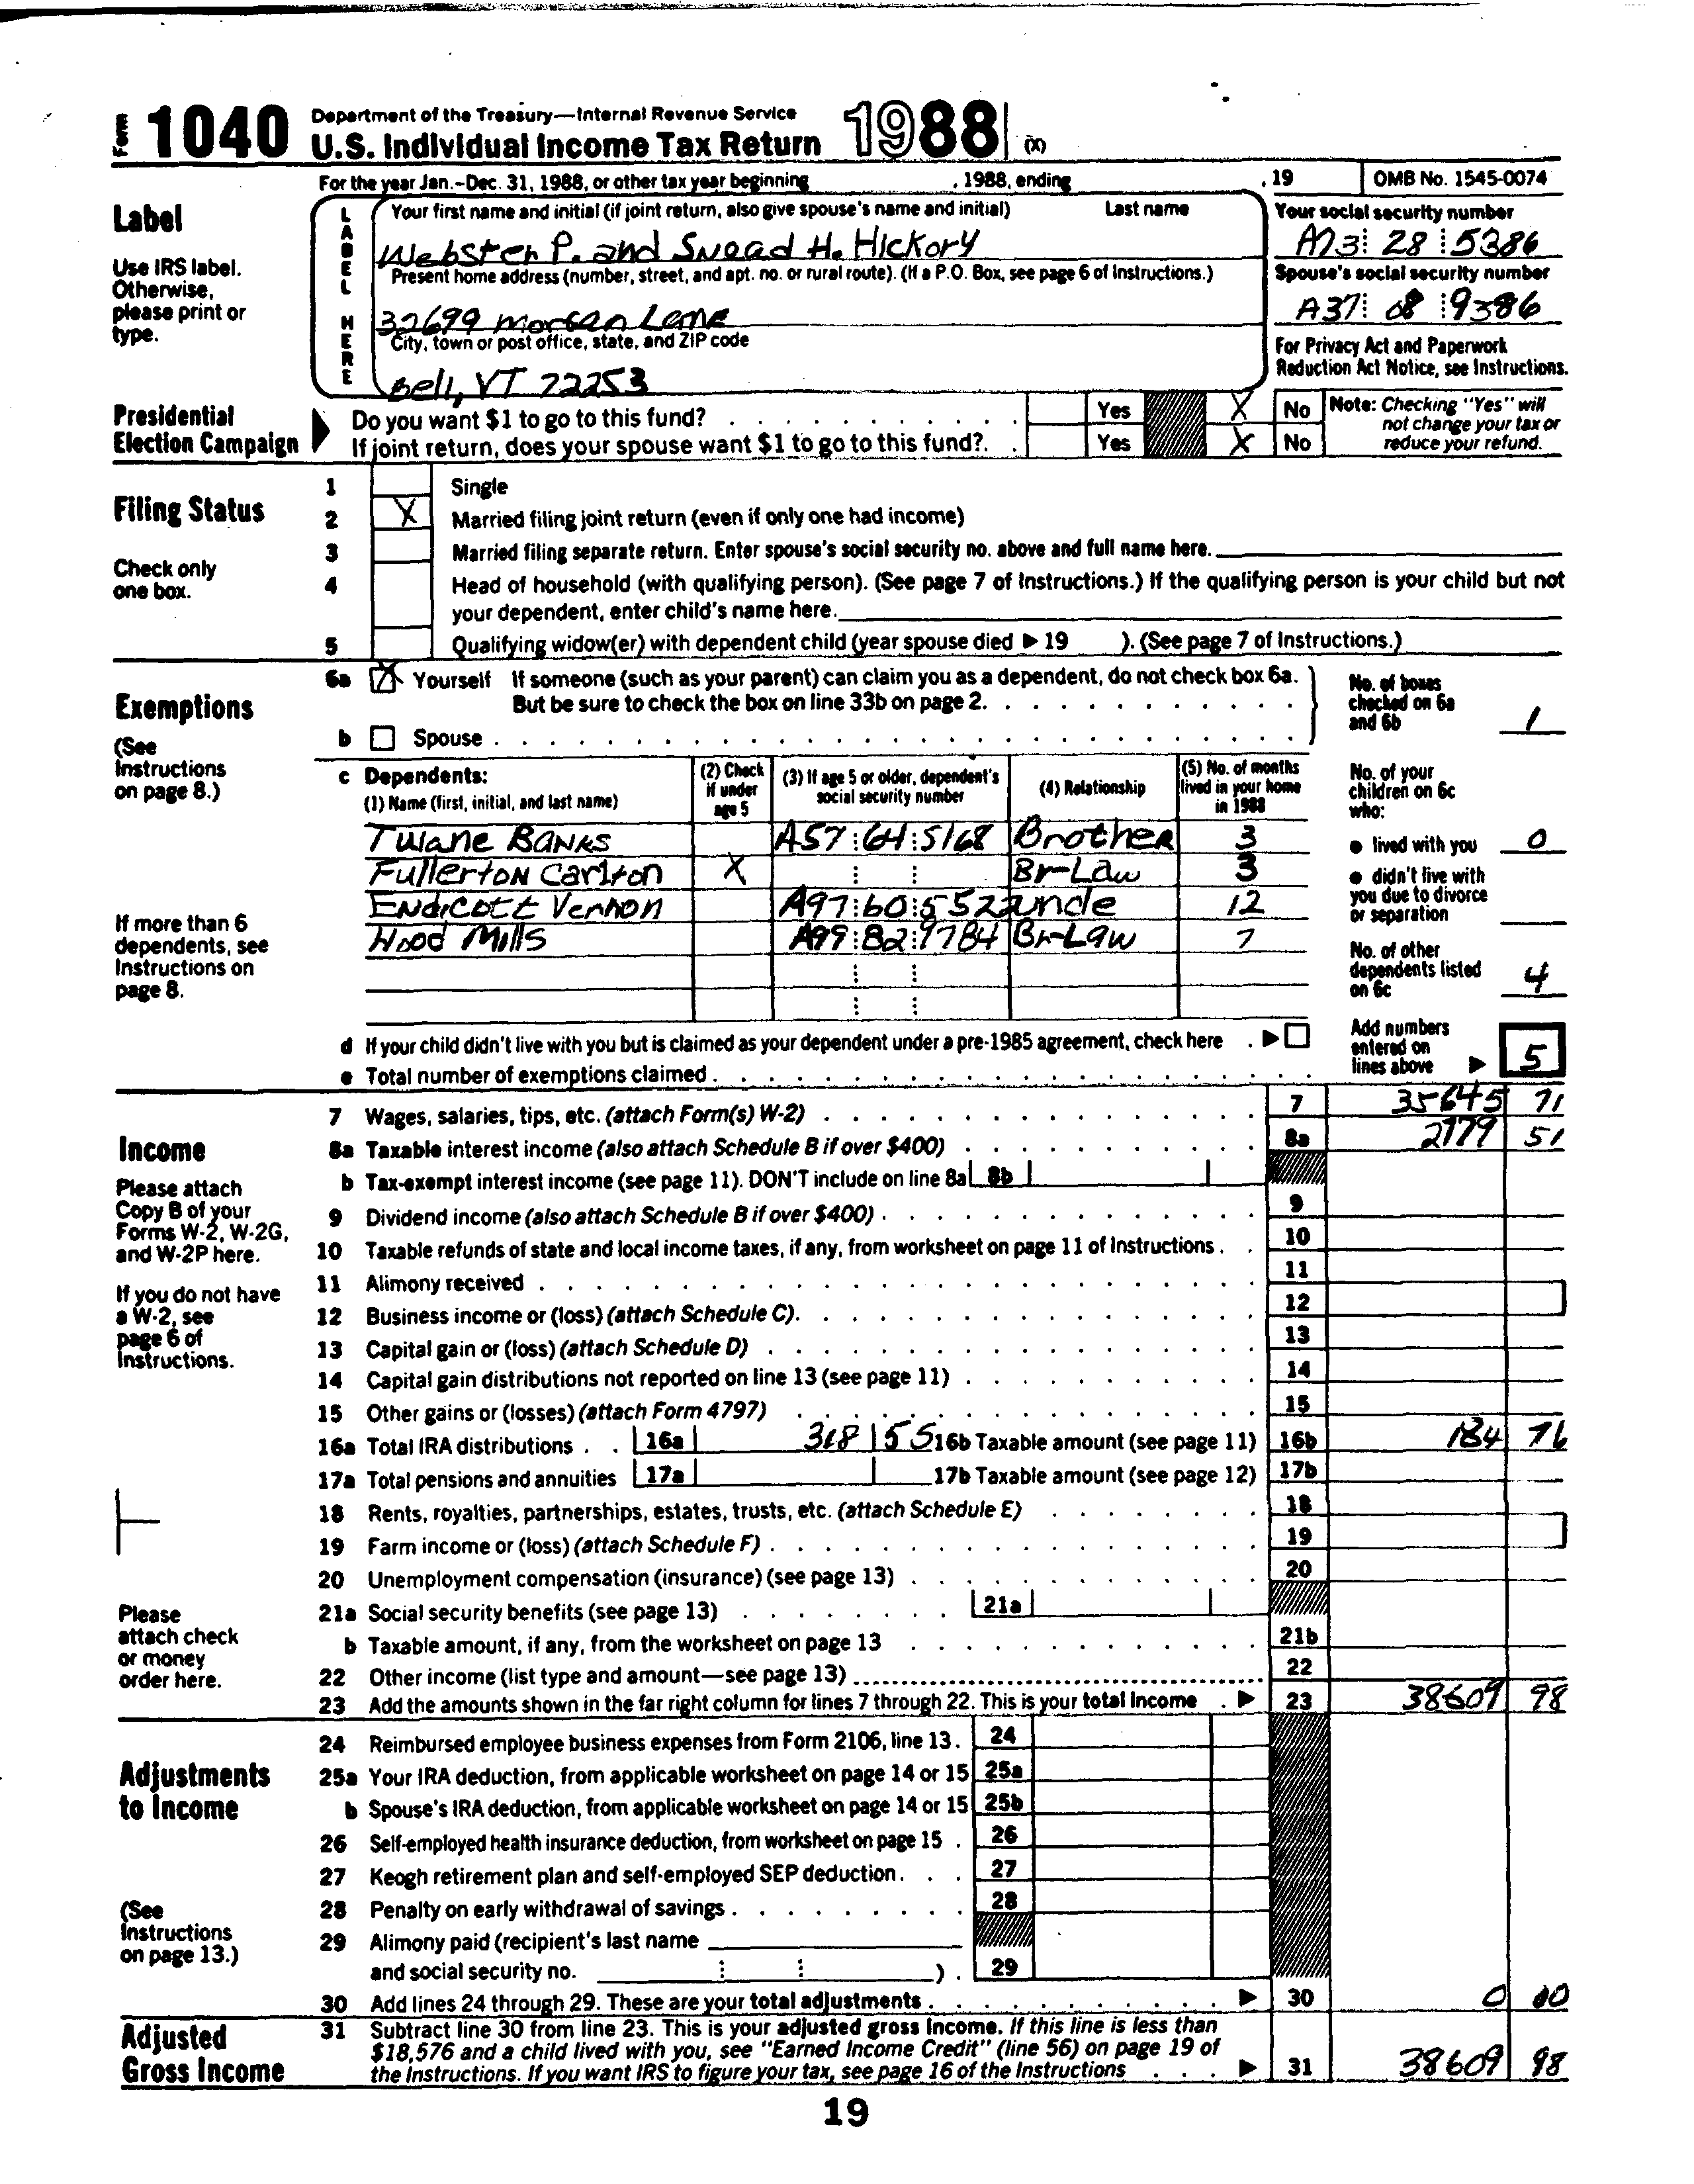 Form 1040 Department of the Treasury—Internal Revenue Service
U.S. Individual Income Tax Return 1988 (X)
For the year Jan.-Dec. 31, 1988, or other tax year beginning , 1988, ending , 19 OMB No. 1545-0074
Label
Use IRS label.
Otherwise,
please print or
type.
LABEL HERE
Your first name and initial (if joint return, also give spouse's name and initial) Last name
Webster P. and Snead H. Hickory
Present home address (number, street, and apt. no. or rural route). (If a P.O. Box, see page 6 of Instructions.)
32699 Morgan Lane
City, town or post office, state, and ZIP code
Bell, VT 72253
Your social security number
A73 28 5386
Spouse's social security number
A37 08 9386
For Privacy Act and Paperwork
Reduction Act Notice, see Instructions.
Presidential
Election Campaign
Do you want $1 to go to this fund? Yes X No
If joint return, does your spouse want $1 to go to this fund? Yes X No
Note: Checking "Yes" will
not change your tax or
reduce your refund.
Filing Status
Check only
one box.
1 Single
2 X Married filing joint return (even if only one had income)
3 Married filing separate return. Enter spouse's social security no. above and full name here.
4 Head of household (with qualifying person). (See page 7 of Instructions.) If the qualifying person is your child but not
your dependent, enter child's name here.
5 Qualifying widow(er) with dependent child (year spouse died ▶ 19 ). (See page 7 of Instructions.)
Exemptions
(See
Instructions
on page 8.)
If more than 6
dependents, see
Instructions on
page 8.
6a X Yourself If someone (such as your parent) can claim you as a dependent, do not check box 6a.
But be sure to check the box on line 33b on page 2.
b Spouse
No. of boxes
checked on 6a
and 6b 1
c Dependents:
(1) Name (first, initial, and last name)
(2) Check
if under
age 5
(3) If age 5 or older, dependent's
social security number
(4) Relationship
(5) No. of months
lived in your home
in 1988
Tulane Banks A57 64 5168 Brother 3
Fullerton Carlton X Br-Law 3
Endicott Vernon A97 60 5522 uncle 12
Hood Mills A99 82 9784 Br-Law 7
No. of your
children on 6c
who:
● lived with you 0
● didn't live with
you due to divorce
or separation
No. of other
dependents listed
on 6c 4
d If your child didn't live with you but is claimed as your dependent under a pre-1985 agreement, check here ▶
e Total number of exemptions claimed
Add numbers
entered on
lines above ▶ 5
Income
Please attach
Copy B of your
Forms W-2, W-2G,
and W-2P here.
If you do not have
a W-2, see
page 6 of
Instructions.
Please
attach check
or money
order here.
7 Wages, salaries, tips, etc. (attach Form(s) W-2) 7 35645 71
8a Taxable interest income (also attach Schedule B if over $400) 8a 2779 51
b Tax-exempt interest income (see page 11). DON'T include on line 8a 8b
9 Dividend income (also attach Schedule B if over $400) 9
10 Taxable refunds of state and local income taxes, if any, from worksheet on page 11 of Instructions 10
11 Alimony received 11
12 Business income or (loss) (attach Schedule C) 12
13 Capital gain or (loss) (attach Schedule D) 13
14 Capital gain distributions not reported on line 13 (see page 11) 14
15 Other gains or (losses) (attach Form 4797) 15
16a Total IRA distributions 16a 318 55 16b Taxable amount (see page 11) 16b 184 76
17a Total pensions and annuities 17a 17b Taxable amount (see page 12) 17b
18 Rents, royalties, partnerships, estates, trusts, etc. (attach Schedule E) 18
19 Farm income or (loss) (attach Schedule F) 19
20 Unemployment compensation (insurance) (see page 13) 20
21a Social security benefits (see page 13) 21a
b Taxable amount, if any, from the worksheet on page 13 21b
22 Other income (list type and amount—see page 13) 22
23 Add the amounts shown in the far right column for lines 7 through 22. This is your total income ▶ 23 38609 98
Adjustments
to Income
(See
Instructions
on page 13.)
24 Reimbursed employee business expenses from Form 2106, line 13 24
25a Your IRA deduction, from applicable worksheet on page 14 or 15 25a
b Spouse's IRA deduction, from applicable worksheet on page 14 or 15 25b
26 Self-employed health insurance deduction, from worksheet on page 15 26
27 Keogh retirement plan and self-employed SEP deduction 27
28 Penalty on early withdrawal of savings 28
29 Alimony paid (recipient's last name
and social security no. ) 29
30 Add lines 24 through 29. These are your total adjustments ▶ 30 0 00
Adjusted
Gross Income
31 Subtract line 30 from line 23. This is your adjusted gross income. If this line is less than
$18,576 and a child lived with you, see "Earned Income Credit" (line 56) on page 19 of
the Instructions. If you want IRS to figure your tax, see page 16 of the Instructions ▶ 31 38609 98
19